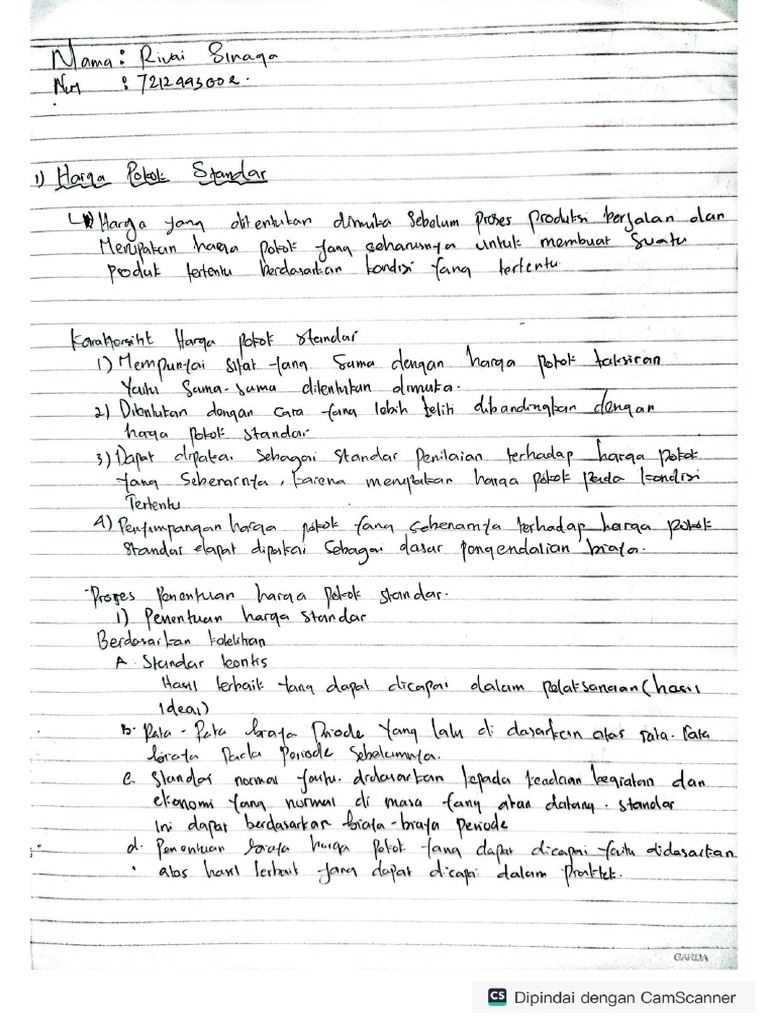 Nama : Rivai Sinaga
Nim : 7212493002.
1) Harga Pokok Standar
Harga yang ditentukan dimuka Sebelum Proses Produksi berjalan dan
Merupakan harga Pokok yang seharusnya untuk membuat Suatu
Produk tertentu berdasarkan kondisi yang tertentu
Harga Pokok Standar
1) Mempunyai Sifat yang Sama dengan harga Pokok taksiran
Yaitu Sama-sama ditentukan dimuka.
2) Ditentukan dengan Cara yang lebih teliti dibandingkan dengan
harga Pokok Standar.
3) Dapat dipakai Sebagai Standar Penilaian terhadap harga Pokok
yang Sebenarnya, karena merupakan harga Pokok Pada kondisi
Tertentu
4) Penyimpangan harga Pokok yang sebenarnya terhadap harga Pokok
Standar dapat dipakai Sebagai dasar Pengendalian biaya.
Proses Penentuan harga Pokok Standar.
1) Penentuan harga Standar
Berdasarkan
A. Standar
Hasil terbaik yang dapat dicapai dalam Pelaksanaan (hasil
Ideal)
b. Rata-Rata biaya Priode Yang lalu di dasarkan atas rata-rata
biaya Pada Periode Sebelumnya.
c. Standar normal yaitu. didasarkan kepada keadaan kegiatan dan
ekonomi yang normal di masa yang akan datang. Standar
Ini dapat berdasarkan biaya-biaya Periode
d. Penentuan biaya harga Pokok yang dapat dicapai yaitu didasarkan
atas hasil terbaik yang dapat dicapai dalam Praktek.
GARDA
CS Dipindai dengan CamScanner